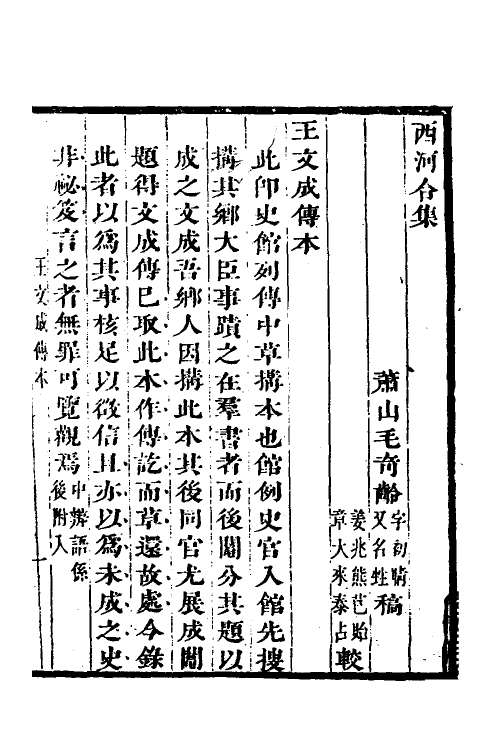 西河合集
蕭山毛奇齡字初晴又名甡稿
姜兆熊芑貽章大來泰占較
王文成傳本
此卽史館列傳中草搆本也館例史官入館先搜
搆其鄉大臣事蹟之在羣書者而後鬮分其題以
成之文成吾鄉人因搆此本其後同官尤展成鬮
題得文成傳已取此本作傳訖而草還故處今錄
此者以爲其事核足以徵信且亦以爲未成之史
非祕笈言之者無罪可覽觀焉中辨語係後附入
王文成傳本
一